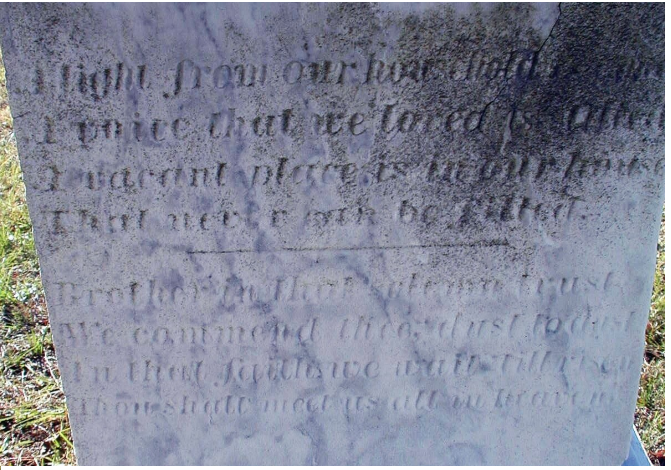 A light from our household is gone
A voice that we loved is stilled
A vacant place is in our house
That never can be filled.
Brother in that solemn trust
We commend thee, dust to dust
In that faith we wait till risen
Thou shalt meet us all in heaven